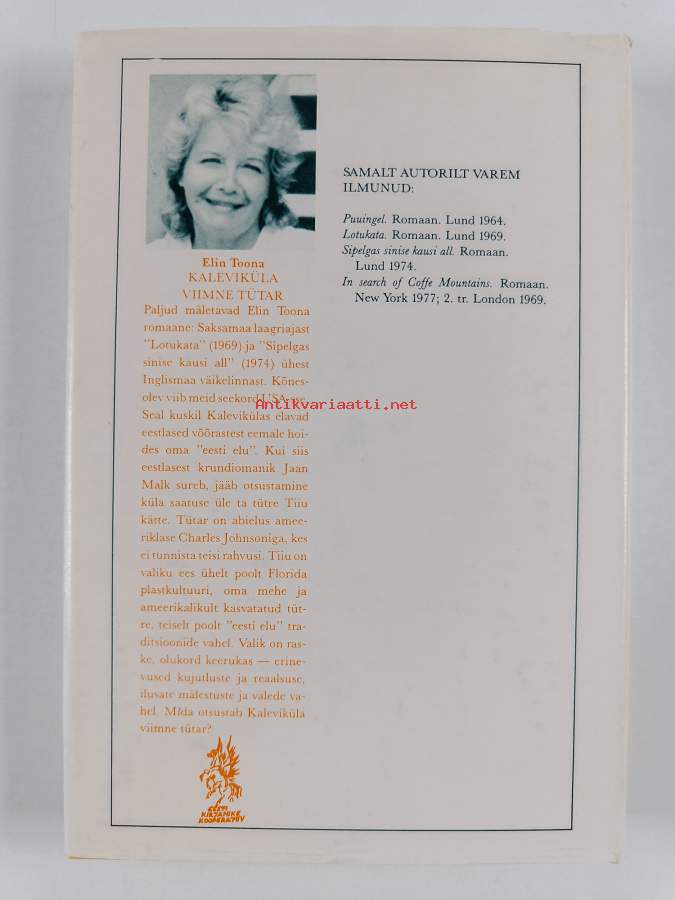 Elin Toona
KALEVIKÜLA
VIIMNE TÜTAR
Paljud mäletavad Elin Toona
romaane: Saksamaa laagriajast
"Lotukata" (1969) ja "Sipelgas
sinise kausi all" (1974) ühest
Inglismaa väikelinnast. Kõnes-
olev viib meid seekord USA-sse.
Seal kuskil Kalevikülas elavad
eestlased võõrastest eemale hoi-
des oma "eesti elu". Kui siis
eestlasest krundiomanik Jaan
Malk sureb, jääb otsustamine
küla saatuse üle ta tütre Tiiu
kätte. Tütar on abielus amee-
riklase Charles Johnsoniga, kes
ei tunnista teisi rahvusi. Tiiu on
valiku ees ühelt poolt Florida
plastkultuuri, oma mehe ja
ameerikalikult kasvatatud tüt-
re, teiselt poolt "eesti elu" tra-
ditsioonide vahel. Valik on ras-
ke, olukord keerukas — erine-
vused kujutluste ja reaalsuse,
ilusate mälestuste ja valede va-
hel. Mida otsustab Kaleviküla
viimne tütar?
EESTI
KIRJANIKE
KOOPERATIIV
SAMALT AUTORILT VAREM
ILMUNUD:
Puuingel. Romaan. Lund 1964.
Lotukata. Romaan. Lund 1969.
Sipelgas sinise kausi all. Romaan.
Lund 1974.
In search of Coffe Mountains. Romaan.
New York 1977; 2. tr. London 1969.
Antikvariaatti.net